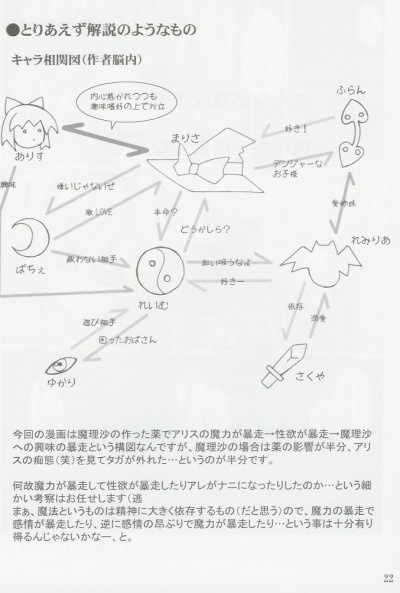 ●とりあえず解説のようなもの
キャラ相関図(作者脳内)
内心惹かれつつも
趣味嗜好の上で対立
ふらん
まりさ
好き!
ありす
デンジャーな
お子様
嫌いじゃないぜ
激LOVE
本命?
どうかしら?
れみりあ
ぱちぇ
敵わない相手
血い吸うなよ
好きー
れいむ
依存
溺愛
遊び相手
困ったおばさん
ゆかり
さくや
今回の漫画は魔理沙の作った薬でアリスの魔力が暴走→性欲が暴走→魔理沙
への興味の暴走という構図なんですが、魔理沙の場合は薬の影響が半分、アリ
スの痴態(笑)を見てタガが外れた…というのが半分です。
何故魔力が暴走して性欲が暴走したりアレがナニになったりしたのか…という細
かい考察はお任せします(逃
まぁ、魔法というものは精神に大きく依存するもの(だと思う)ので、魔力の暴走で
感情が暴走したり、逆に感情の昂ぶりで魔力が暴走したり…という事は十分有り
得るんじゃないかなー、と。
22